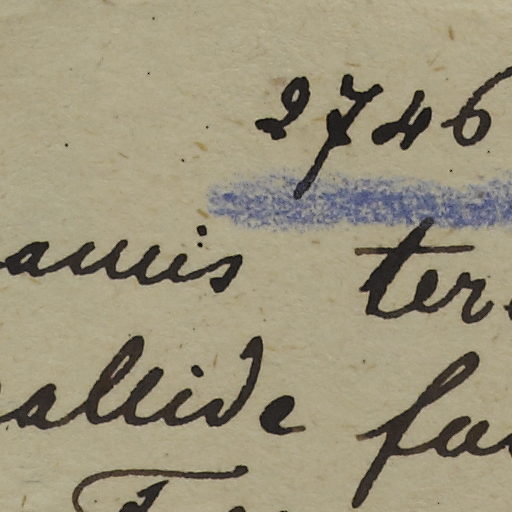 2746
amis ter
allide fa